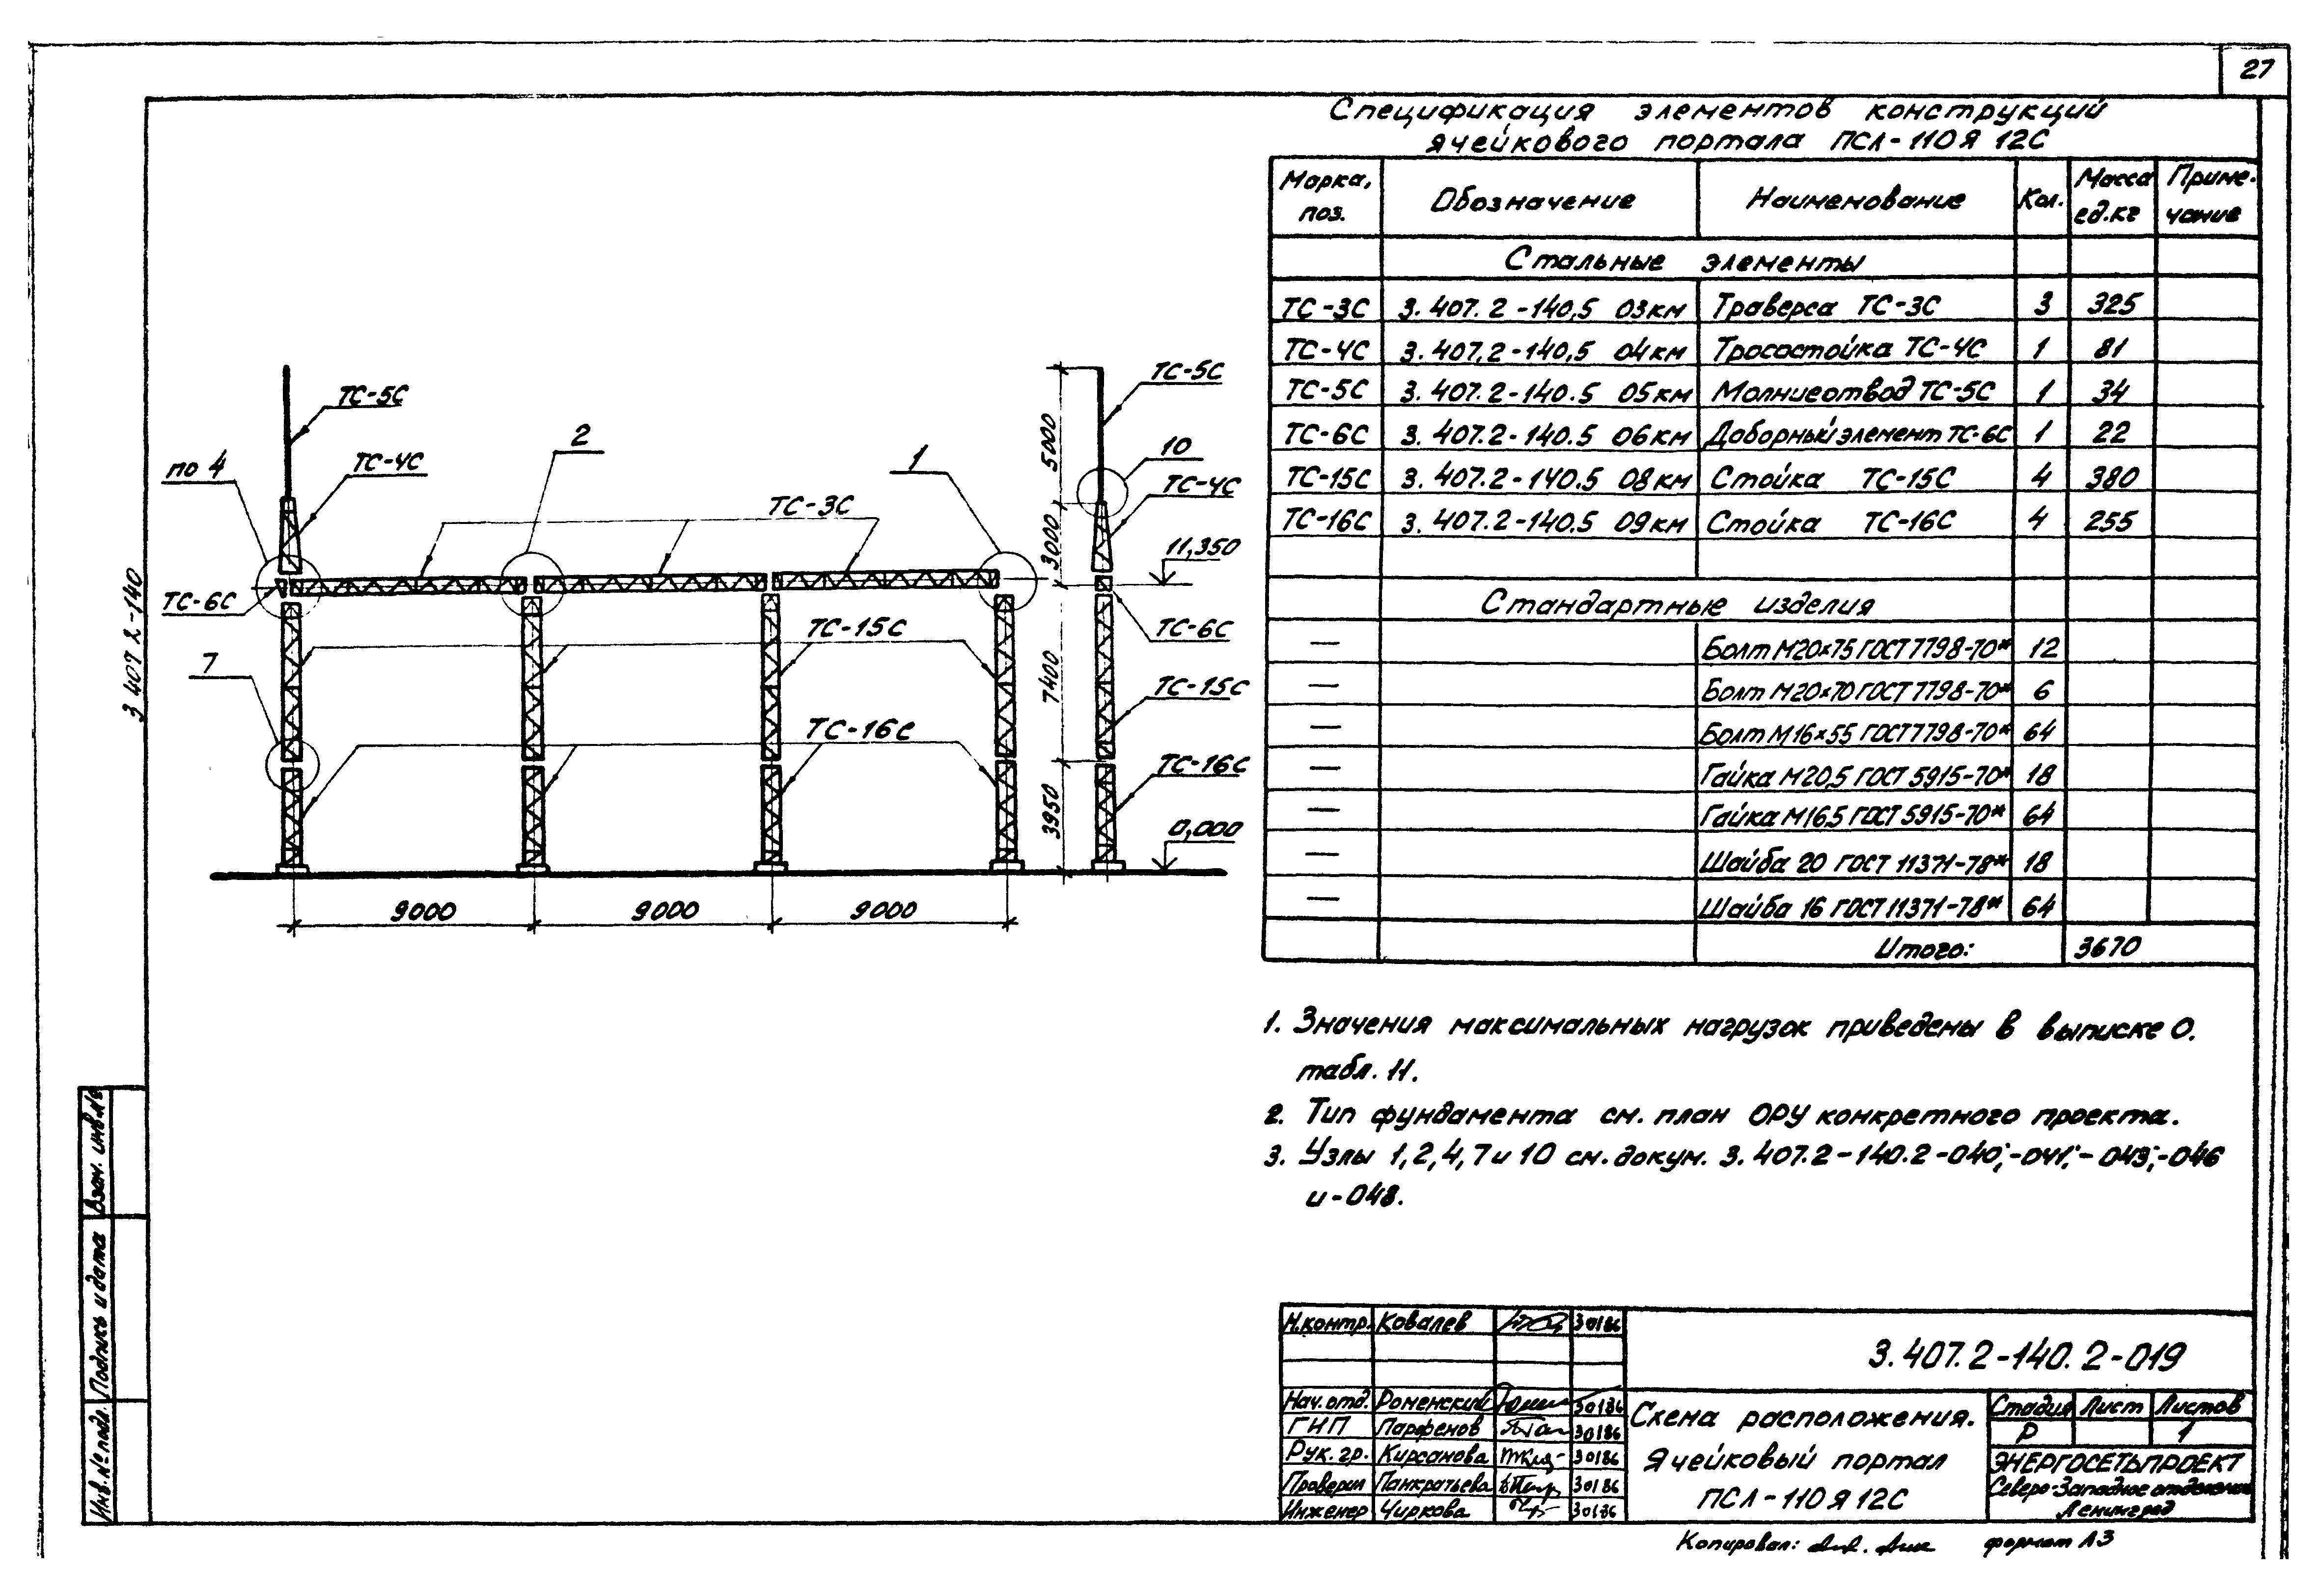 27
Спецификация элементов конструкций
ячейкового портала ПСЛ-110Я 12С
Марка, поз. Обозначение Наименование Кол. Масса ед.кг Приме-чание
Стальные элементы
ТС-3С 3.407.2-140,5 03км Траверса ТС-3С 3 325
ТС-4С 3.407.2-140,5 04км Тросостойка ТС-4С 1 81
ТС-5С 3.407.2-140.5 05км Молниеотвод ТС-5С 1 34
ТС-6С 3.407.2-140.5 06км Доборный элемент ТС-6С 1 22
ТС-15С 3.407.2-140.5 08км Стойка ТС-15С 4 380
ТС-16С 3.407.2-140.5 09км Стойка ТС-16С 4 255
Стандартные изделия
— Болт М20×75 ГОСТ 7798-70* 12
— Болт М20×70 ГОСТ 7798-70* 6
— Болт М16×55 ГОСТ 7798-70* 64
— Гайка М20,5 ГОСТ 5915-70* 18
— Гайка М16,5 ГОСТ 5915-70* 64
— Шайба 20 ГОСТ 11371-78* 18
— Шайба 16 ГОСТ 11371-78* 64
Итого: 3670
ТС-5С
ТС-5С
2
1
10
по 4
ТС-4С
ТС-4С
ТС-3С
5000
3000
11,350
ТС-6С
ТС-15С
ТС-6С
7
7400
ТС-15С
ТС-16С
ТС-16С
3950
0,000
9000 9000 9000
3 407 2-140
1. Значения максимальных нагрузок приведены в выписке 0.
табл. 11.
2. Тип фундамента см. план ОРУ конкретного проекта.
3. Узлы 1,2,4,7 и 10 см. докум. 3.407.2-140.2-040;-041;-043;-046
и-048.
Взам. инв.№
Подпись и дата
Инв.№ подл.
Н.контр. Ковалев 30186
3.407.2-140.2-019
Нач.отд. Роменский 30186
ГИП Парфенов 30186
Рук. гр. Кирсанова 30186
Проверил Панкратьева 30186
Инженер Чиркова 30186
Схема расположения.
Ячейковый портал
ПСЛ-110Я 12С
Стадия Лист Листов
Р 1
ЭНЕРГОСЕТЬПРОЕКТ
Северо-Западное отделение
Ленинград
Копировал:
формат А3